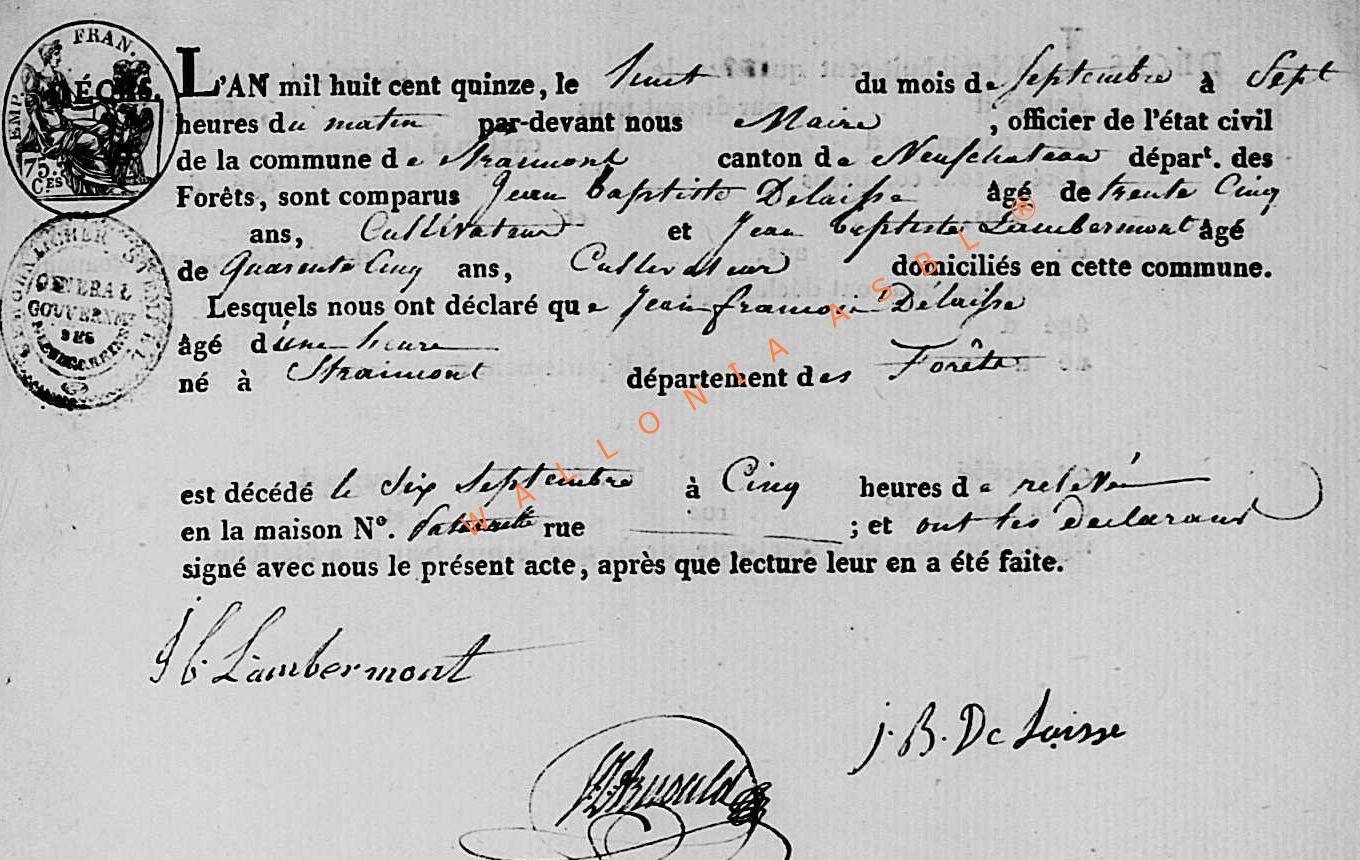 EMP. FRAN.
DÉCÈS.
75.
C.ES
GENERAL
GOUVERNEMT
DES
L'AN mil huit cent quinze, le huit du mois de Septembre à Sept
heures du matin par-devant nous Maire , officier de l'état civil
de la commune de Straimont canton de Neufchateau départ. des
Forêts, sont comparus Jean baptiste Delaisse âgé de trente Cinq
ans, Cultivateur et Jean baptiste Lambermont âgé
de Quarente Cinq ans, Cultivateur domiciliés en cette commune.
Lesquels nous ont déclaré que Jean françois Delaisse
âgé d'une heure
né à Straimont département des Forêts
est décédé le Six Septembre à Cinq heures de relevée
en la maison Nº. Paternelle rue ; et ont les déclarans
signé avec nous le présent acte, après que lecture leur en a été faite.
J b. Lambermont
j. B. De Laisse
WALLONIA ASBL ®